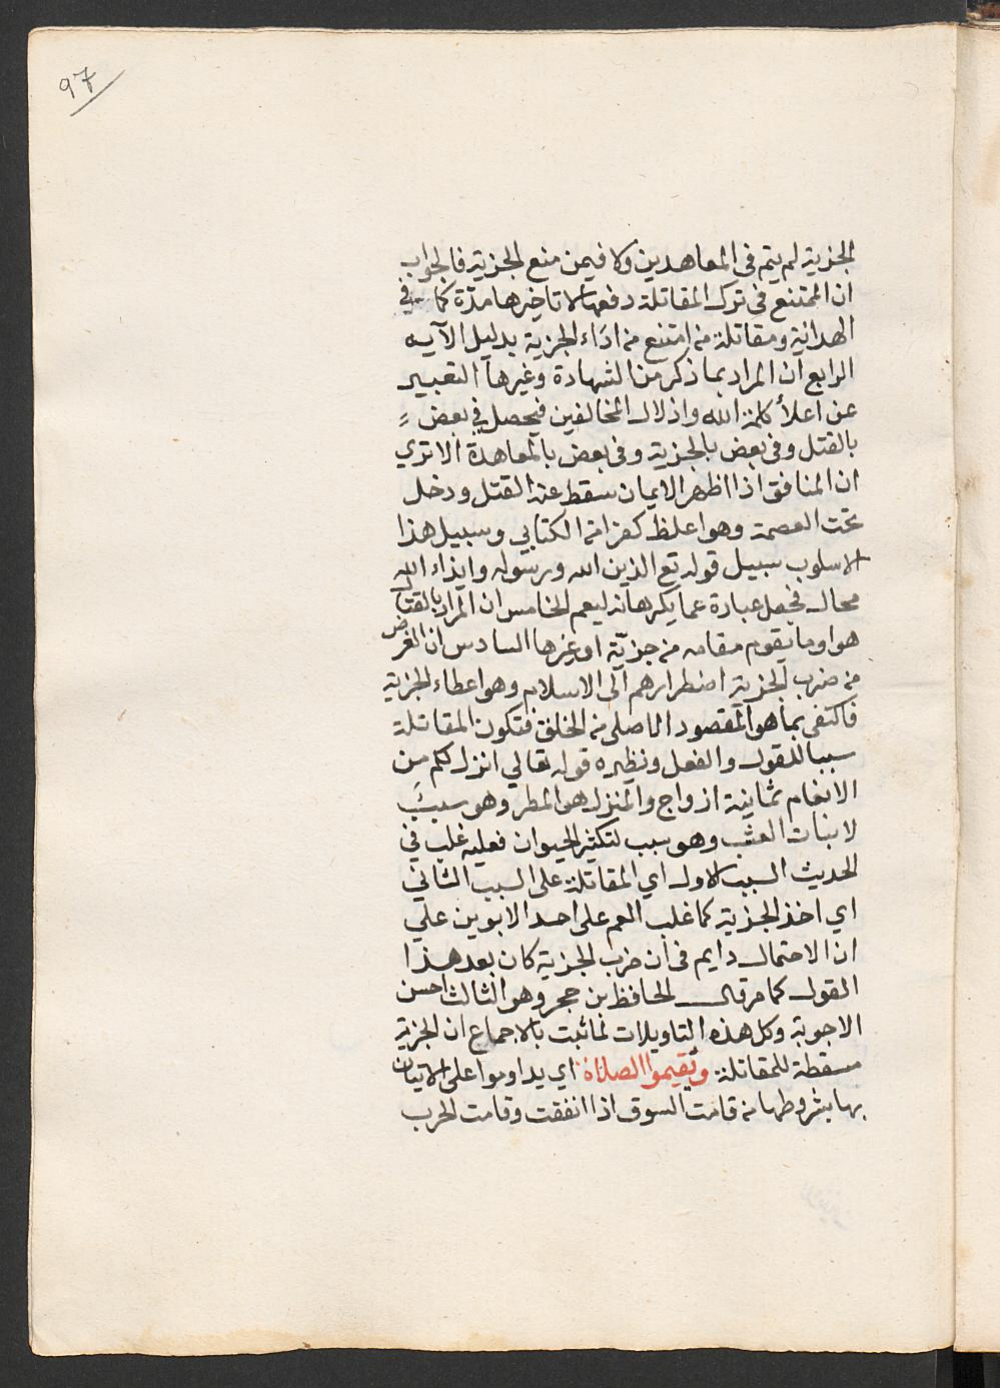 97
الجزية لم يتم فى المعاهدين ولا فيمن منع الجزية فالجواب
ان الممتنع فى ترك المقاتلة دفعها لا تاخيرها مدّة كما فى
الهدانة ومقاتلة من امتنع من اداء الجزية بدليل الآيه
الرابع ان المراد بما ذكر من الشهادة وغيرها التعبير
عن اعلأ كلمة الله واذلال المخالفين فيحصل في بعض
بالقتل وفى بعض بالجزية وفى بعض بالمعاهدة الا تري
ان المنافق اذا اظهر الايمان سقط عنه القتل ودخل
تحت العصمة وهو اغلظ كفرا من الكتابي وسبيل هذا
الاسلوب سبيل قوله تع الذين الله ورسوله وايذاء الله
محال فجعل عبارة عما يكرهانه ليعم الخامس ان المراد بالقتال
هو او ما يقوم مقامه من جزية او غيرها السادس ان الغرض
من ضرب الجزية اضطرارهم الى الاسلام وهو اعطاء الجزية
فاكتفى بما هو المقصود الاصلى من الخلق فتكون المقاتلة
سببا للقول والفعل ونظيره قوله تعالي انزل لكم من
الانعام ثمانية ازواج والمنزل هو المطر وهو سبب
لانبات العشب وهو سبب لتكثير الحيوان فعليه غلب في
الحديث السبب الاول اي المقاتلة على السبب الثاني
اي اخذ الجزية كما غلب العم على احد الابوين علي
ان الاحتمال دايم فى ان ضرب الجزية كان بعد هذا
القول كما مر قال الحافظ بن حجر وهو الثالث احسن
الاجوبة وكل هذه التاويلات لما ثبت بالاجماع ان الجزية
مسقطة للمقاتلة ويقيموا الصلاة اي يداوموا على الاتيان
بها بشروطها من قامت السوق اذا انفقت وقامت الحرب